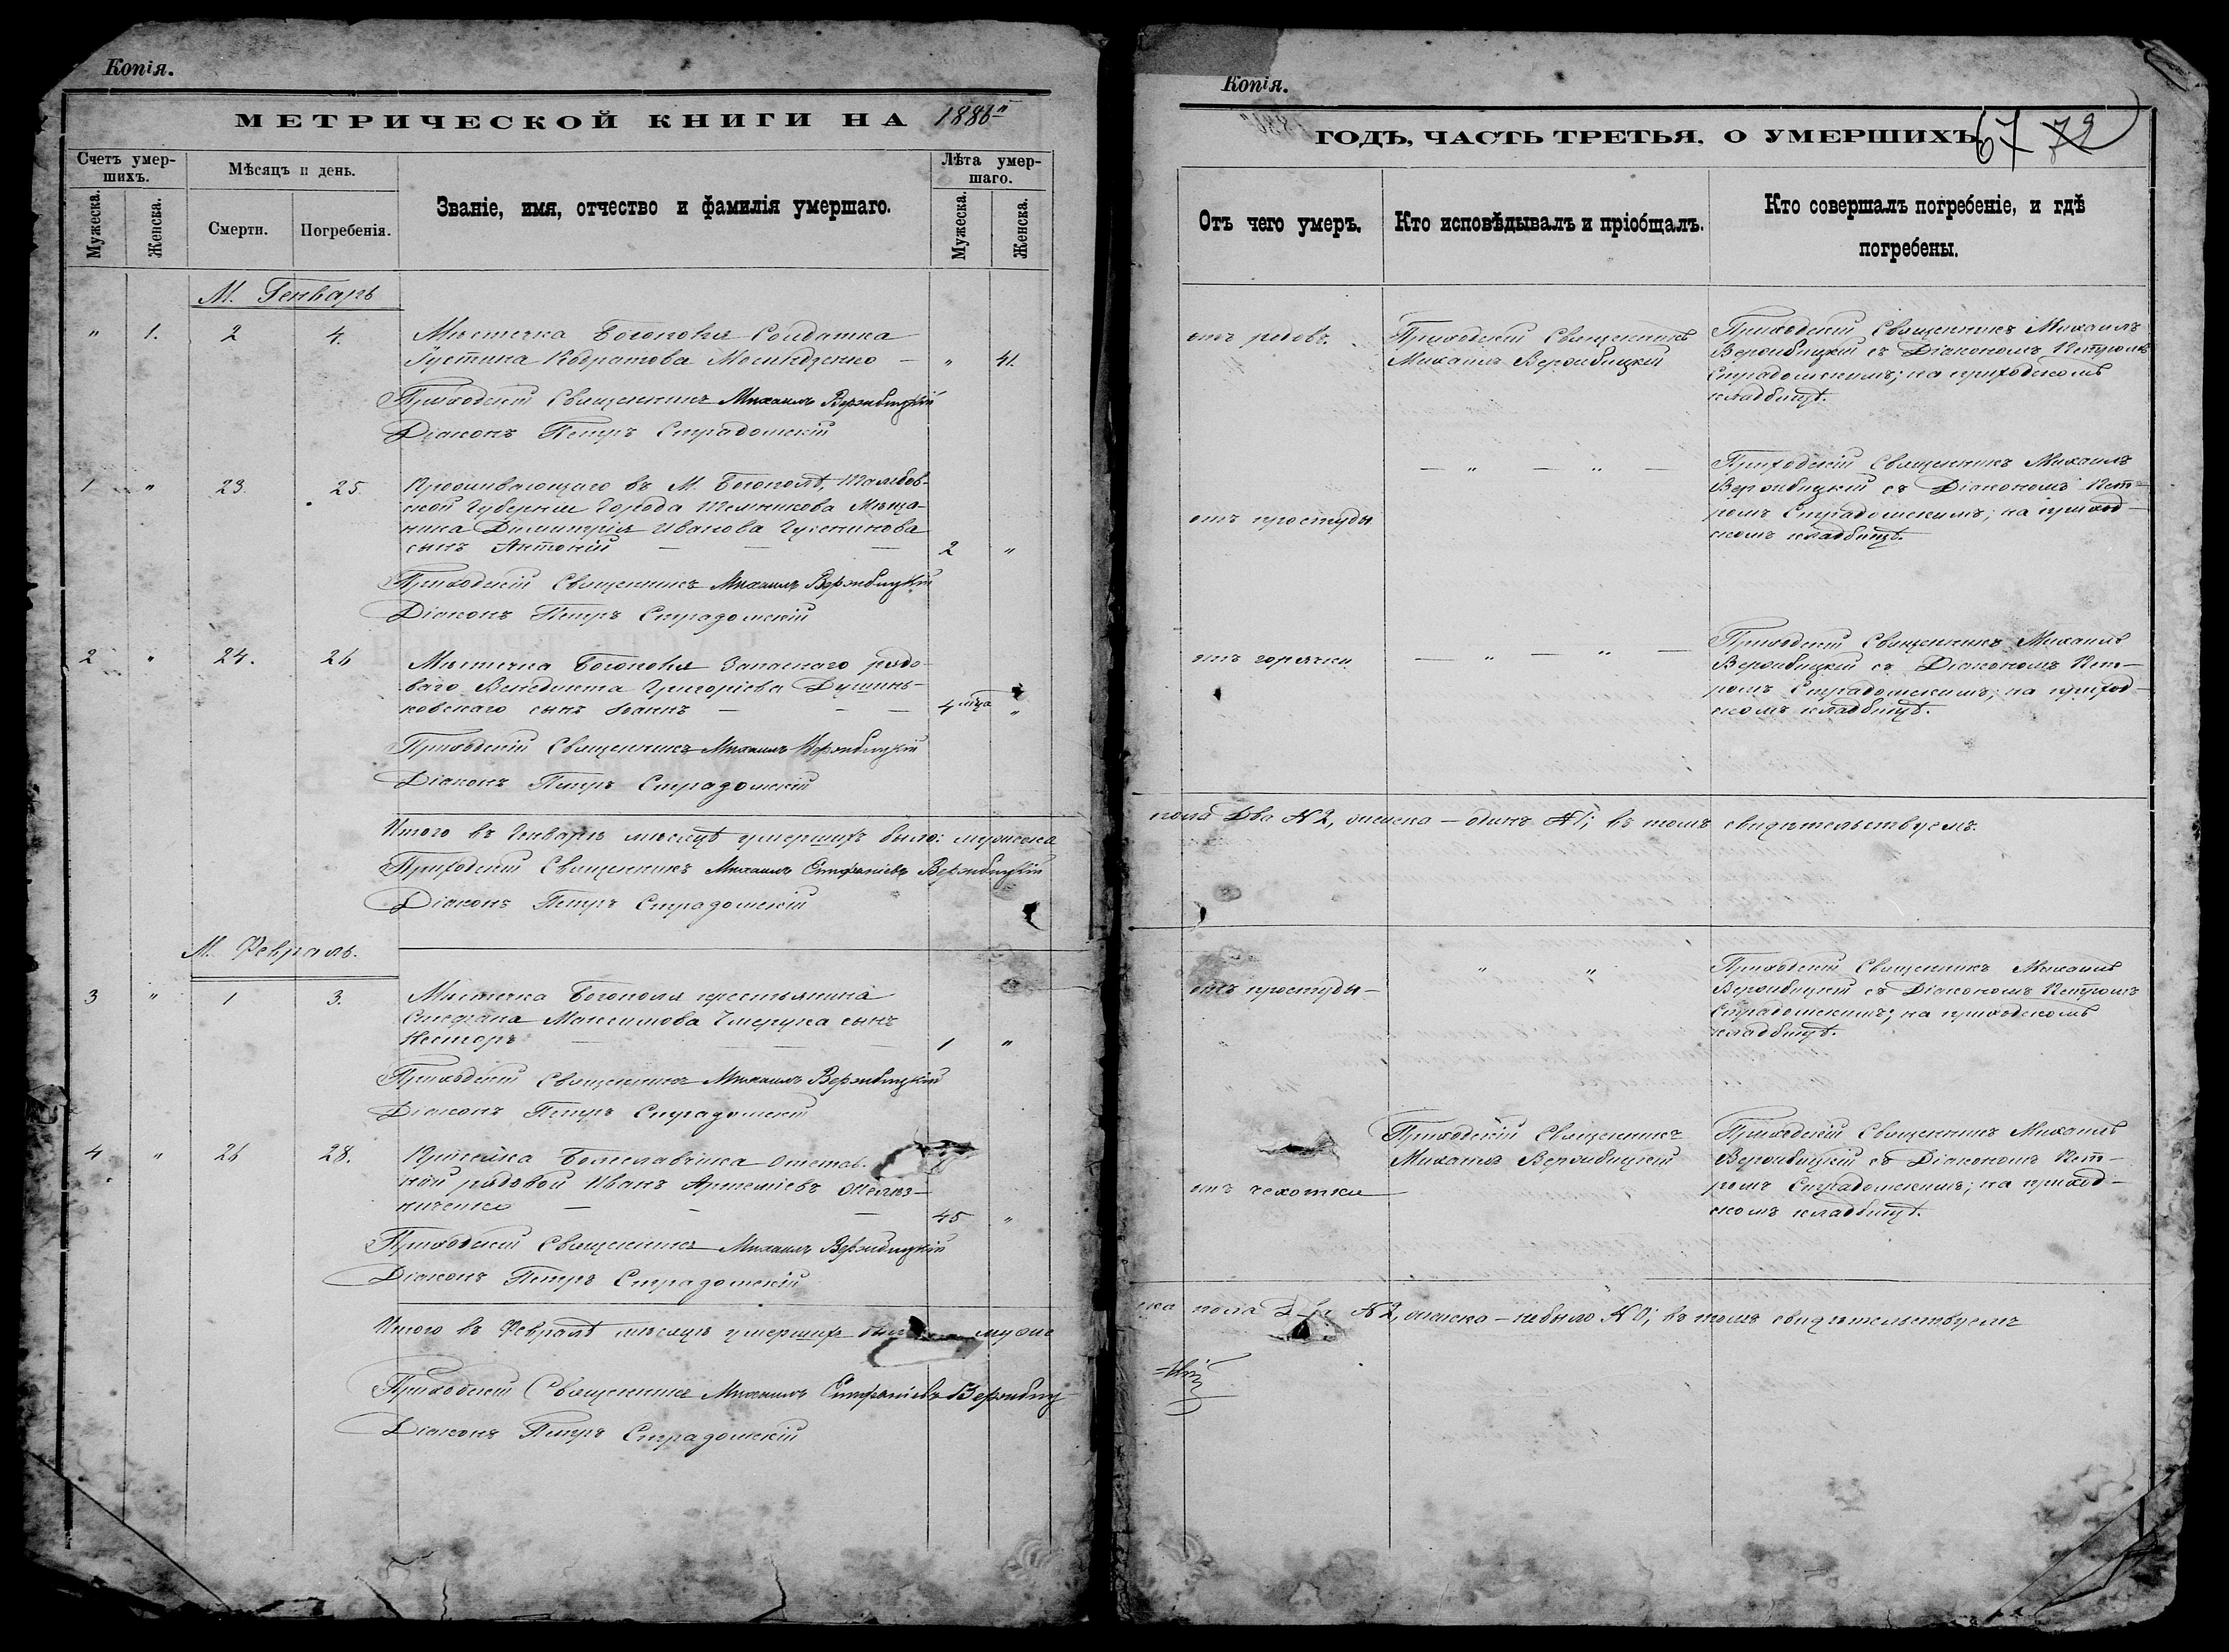 Копія.
МЕТРИЧЕСКОЙ КНИГИ НА 1886й
Счетъ умер-
шихъ.
Мѣсяцъ и день.
Званіе, имя, отчество и фамилія умершаго.
Лѣта умер-
шаго.
Мужеска.
Женска.
Смерти.
Погребенія.
Мужеска.
Женска.
М. Генварь
" 1. 2 4. Мѣстечка Богополя Солдатка
Іустина Кодратова — " 41.
Приходскій Священникъ Михаилъ Вержбицкій
Діаконъ Петръ Страдомскій
1 " 23. 25. Проживающаго въ М. Богополѣ, Тамбов-
ской Губерніи Города Темникова Мѣща-
нина Димитрія Иванова
сынъ Антоній — — — 2 "
Приходскій Священникъ Михаилъ Вержбицкій
Діаконъ Петръ Страдомскій
2 " 24. 26 Мѣстечка Богополя Запаснаго рядо-
ваго Венедикта Григоріева Душинь-
ковскаго сынъ Іоаннъ — — — 4 мца "
Приходскій Священникъ Михаилъ Вержбицкій
Діаконъ Петръ Страдомскій
Итого въ Генварѣ мѣсяцѣ умершихъ было: мужеска
Приходскій Священникъ Михаилъ Епифаніевъ Вержбицкій
Діаконъ Петръ Страдомскій
М. Февраль.
3 " 1 3. Мѣстечка Богополя крестьянина
Стефана Максимова сынъ
Несторъ — — — 1 "
Приходскій Священникъ Михаилъ Вержбицкій
Діаконъ Петръ Страдомскій
4 " 26 28. Отстав-
ной рядовой Иванъ Артеміевъ
— — — 45 "
Приходскій Священникъ Михаилъ Вержбицкій
Діаконъ Петръ Страдомскій
Итого въ Февралѣ мѣсяцѣ умершихъ было муже
Приходскій Священникъ Михаилъ Епифаніевъ Вержбиц
Діаконъ Петръ Страдомскій
Копія.
ГОДЪ, ЧАСТЬ ТРЕТЬЯ, О УМЕРШИХЪ.
67 72
Отъ чего умеръ.
Кто исповѣдывалъ и пріобщалъ.
Кто совершалъ погребеніе, и гдѣ
погребены.
отъ родовъ.
Приходскій Священникъ
Михаилъ Вержбицкій
Приходскій Священникъ Михаилъ
Вержбицкій съ Діакономъ Петромъ
Страдомскимъ; на приходскомъ
кладбищѣ.
отъ простуды
— " — " —
Приходскій Священникъ Михаилъ
Вержбицкій съ Діакономъ Пет-
ромъ Страдомскимъ; на приход-
скомъ кладбищѣ.
отъ горячки
— " — " —
Приходскій Священникъ Михаилъ
Вержбицкій съ Діакономъ Пет-
ромъ Страдомскимъ; на приход-
скомъ кладбищѣ.
пола два № 2, женска — одинъ № 1; въ томъ свидѣтельствуемъ.
отъ простуды —
" "
Приходскій Священникъ Михаилъ
Вержбицкій съ Діакономъ Петромъ
Страдомскимъ; на приходскомъ
кладбищѣ.
отъ чехотки
Приходскій Священникъ
Михаилъ Вержбицкій
Приходскій Священникъ Михаилъ
Вержбицкій съ Діакономъ Пет-
ромъ Страдомскимъ; на приход-
скомъ кладбищѣ.
ска пола два № 2, женска — небыло № 0; въ томъ свидѣтельствуемъ
=кій